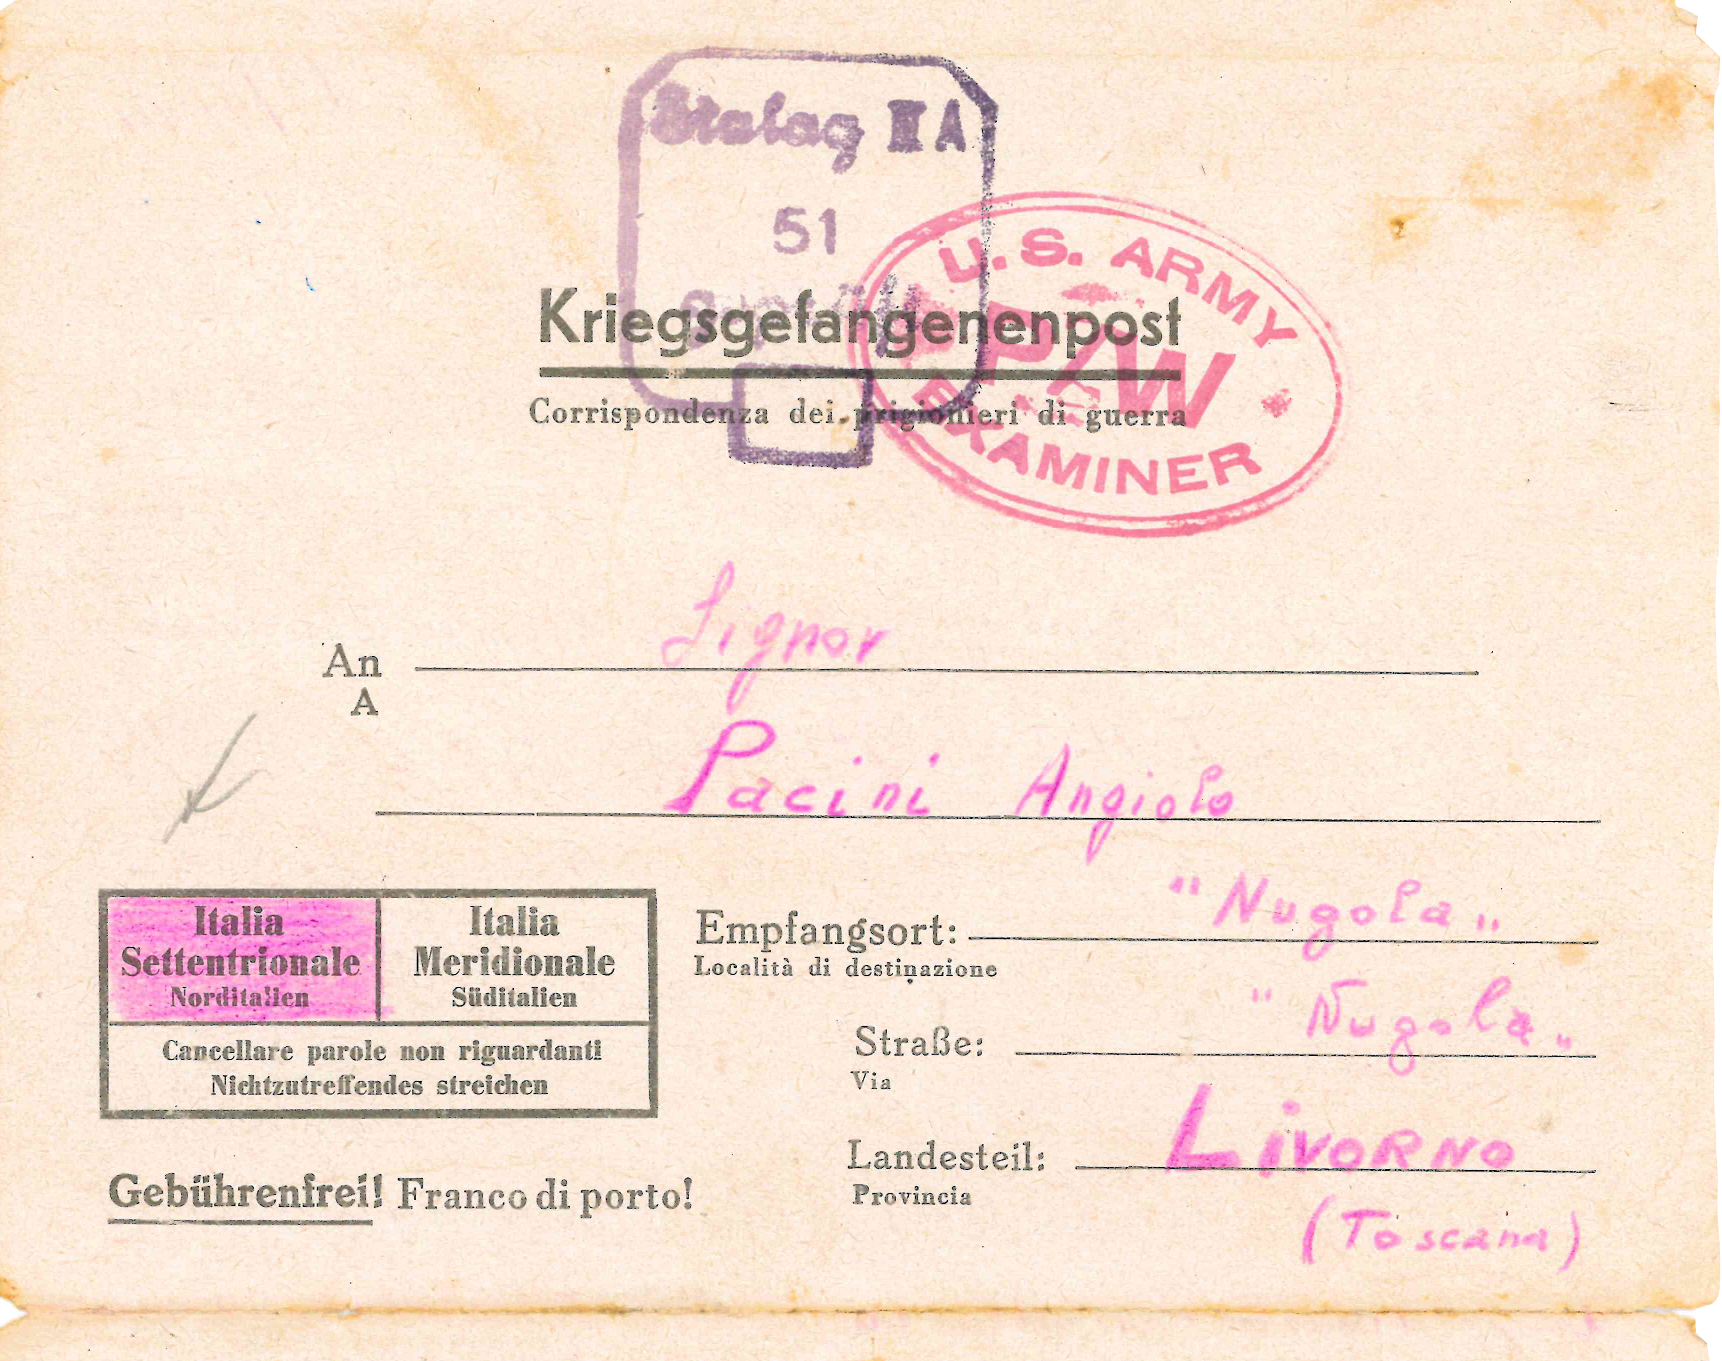 Stalag II A
51
Geprüft
U.S. ARMY
P/W
EXAMINER
Kriegsgefangenenpost
Corrispondenza dei prigionieri di guerra
An Signor
A
Pacini Angiolo
Italia Settentrionale
Norditalien
Italia Meridionale
Süditalien
Cancellare parole non riguardanti
Nichtzutreffendes streichen
Empfangsort: "Nugola"
Località di destinazione
Straße: "Nugola"
Via
Landesteil: LIVORNO
Provincia
(Toscana)
Gebührenfrei! Franco di porto!